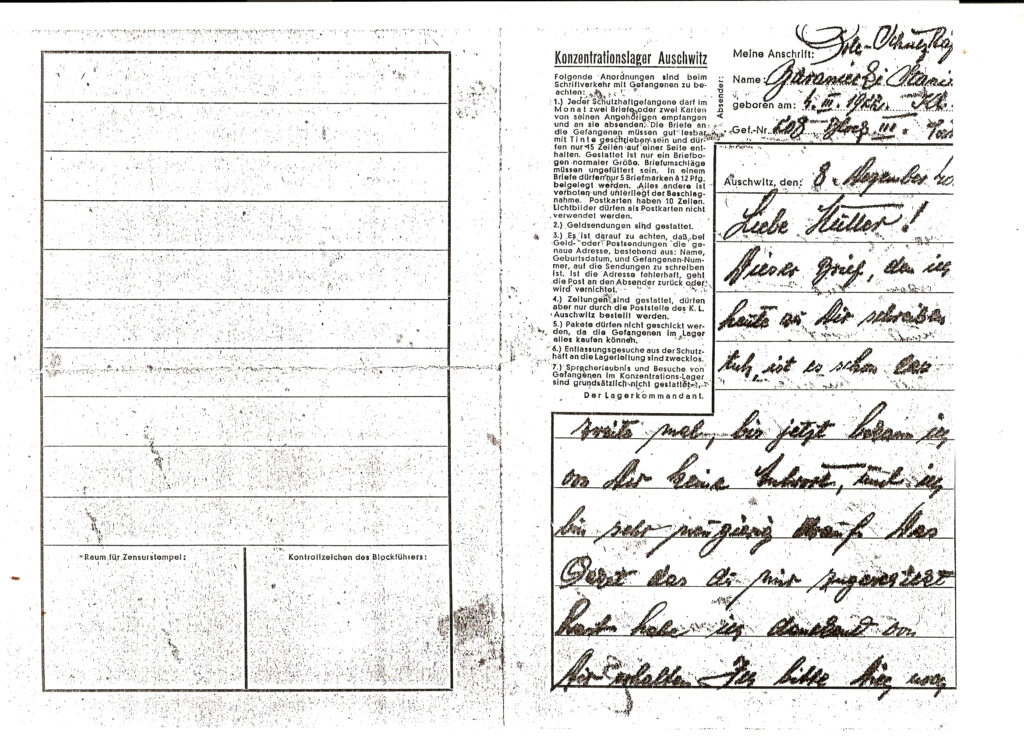 Konzentrationslager Auschwitz
Folgende Anordnungen sind beim
Schriftverkehr mit Gefangenen zu be-
achten:
1.) Jeder Schutzhaftgefangene darf im
Monat zwei Briefe oder zwei Karten
von seinen Angehörigen empfangen
und an sie absenden. Die Briefe an
die Gefangenen müssen gut lesbar
mit Tinte geschrieben sein und dür-
fen nur 15 Zeilen auf einer Seite ent-
halten. Gestattet ist nur ein Briefbo-
gen normaler Größe. Briefumschläge
müssen ungefüttert sein. In einem
Briefe dürfen nur 5 Briefmarken à 12 Pfg.
beigelegt werden. Alles andere ist
verboten und unterliegt der Beschlag-
nahme. Postkarten haben 10 Zeilen.
Lichtbilder dürfen als Postkarten nicht
verwendet werden.
2.) Geldsendungen sind gestattet.
3.) Es ist darauf zu achten, daß bei
Geld- oder Postsendungen die ge-
naue Adresse, bestehend aus: Name,
Geburtsdatum, und Gefangenen-Num-
mer, auf die Sendungen zu schreiben
ist. Ist die Adresse fehlerhaft, geht
die Post an den Absender zurück oder
wird vernichtet.
4.) Zeitungen sind gestattet, dürfen
aber nur durch die Poststelle des K. L.
Auschwitz bestellt werden.
5.) Pakete dürfen nicht geschickt wer-
den, da die Gefangenen im Lager
alles kaufen können.
6.) Entlassungsgesuche aus der Schutz-
haft an die Lagerleitung sind zwecklos.
7.) Sprecherlaubnis und Besuche von
Gefangenen im Konzentrations-Lager
sind grundsätzlich nicht gestattet.
Der Lagerkommandant.
Absender:
Meine Anschrift:
Name:
geboren am: 4. III. 1922.
Gef.-Nr. III.
Auschwitz, den: 8 Dezember 40
Liebe Mutter!
Dieser Brief, den ich
heute zu Dir schreiben
tuh, ist es schon das
zweite mal, bis jetzt bekam ich
von Dir keine Antwort, und ich
bin sehr neugierig drauf. Das
das du mir zugeschickt
hast habe ich dankend von
Dir erhalten. Ich bitte Dich noch
Raum für Zensurstempel:
Kontrollzeichen des Blockführers: